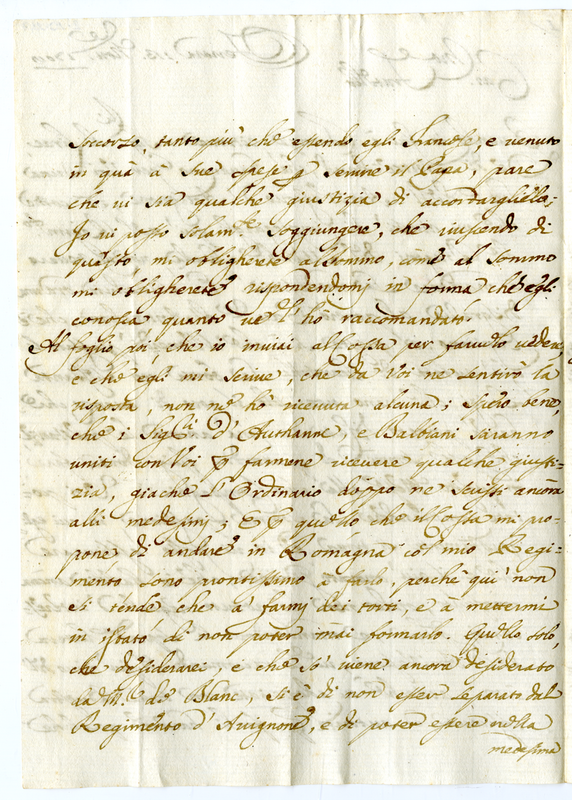 soccorso, tanto più che essendo egli Francese, e venuto
in quà à sue spese p servire il Papa, pare
che vi sia qualche giustizia di accordargliello;
Io vi posso solam.te soggiungere, che riuscendo di
questo mi obligherete al sommo, come al sommo
mi obligherete rispondendomj in forma che egli
conosca quanto ve l' hò raccomandato.
Al foglio poi, che io inviai al Cossa per farvelo vedere,
e che egli mi scrive, che da Voi ne sentirò la
risposta, non ne hò ricevuta alcuna; spero bene,
che i Sig.ri d' Authanne, e Balbiani saranno
uniti con Voi p farmene ricevere qualche giusti-
zia, giache l' Ordinario doppo ne scrissi ancora
alli medesimj; & p quello che il Cossa mi pro-
pone di andare in Romagna col mio Regi-
mento sono prontissimo à farlo, perche quì non
si tende che à farmj dei torti, e à mettermi
in istato di non poter mai formarlo. Quello solo,
che desiderarei, e che si viene ancora desiderato
da M. de Blanc, si è di non esser separato dal
Regimento d' Avignone, e di poter essere nella
medesima